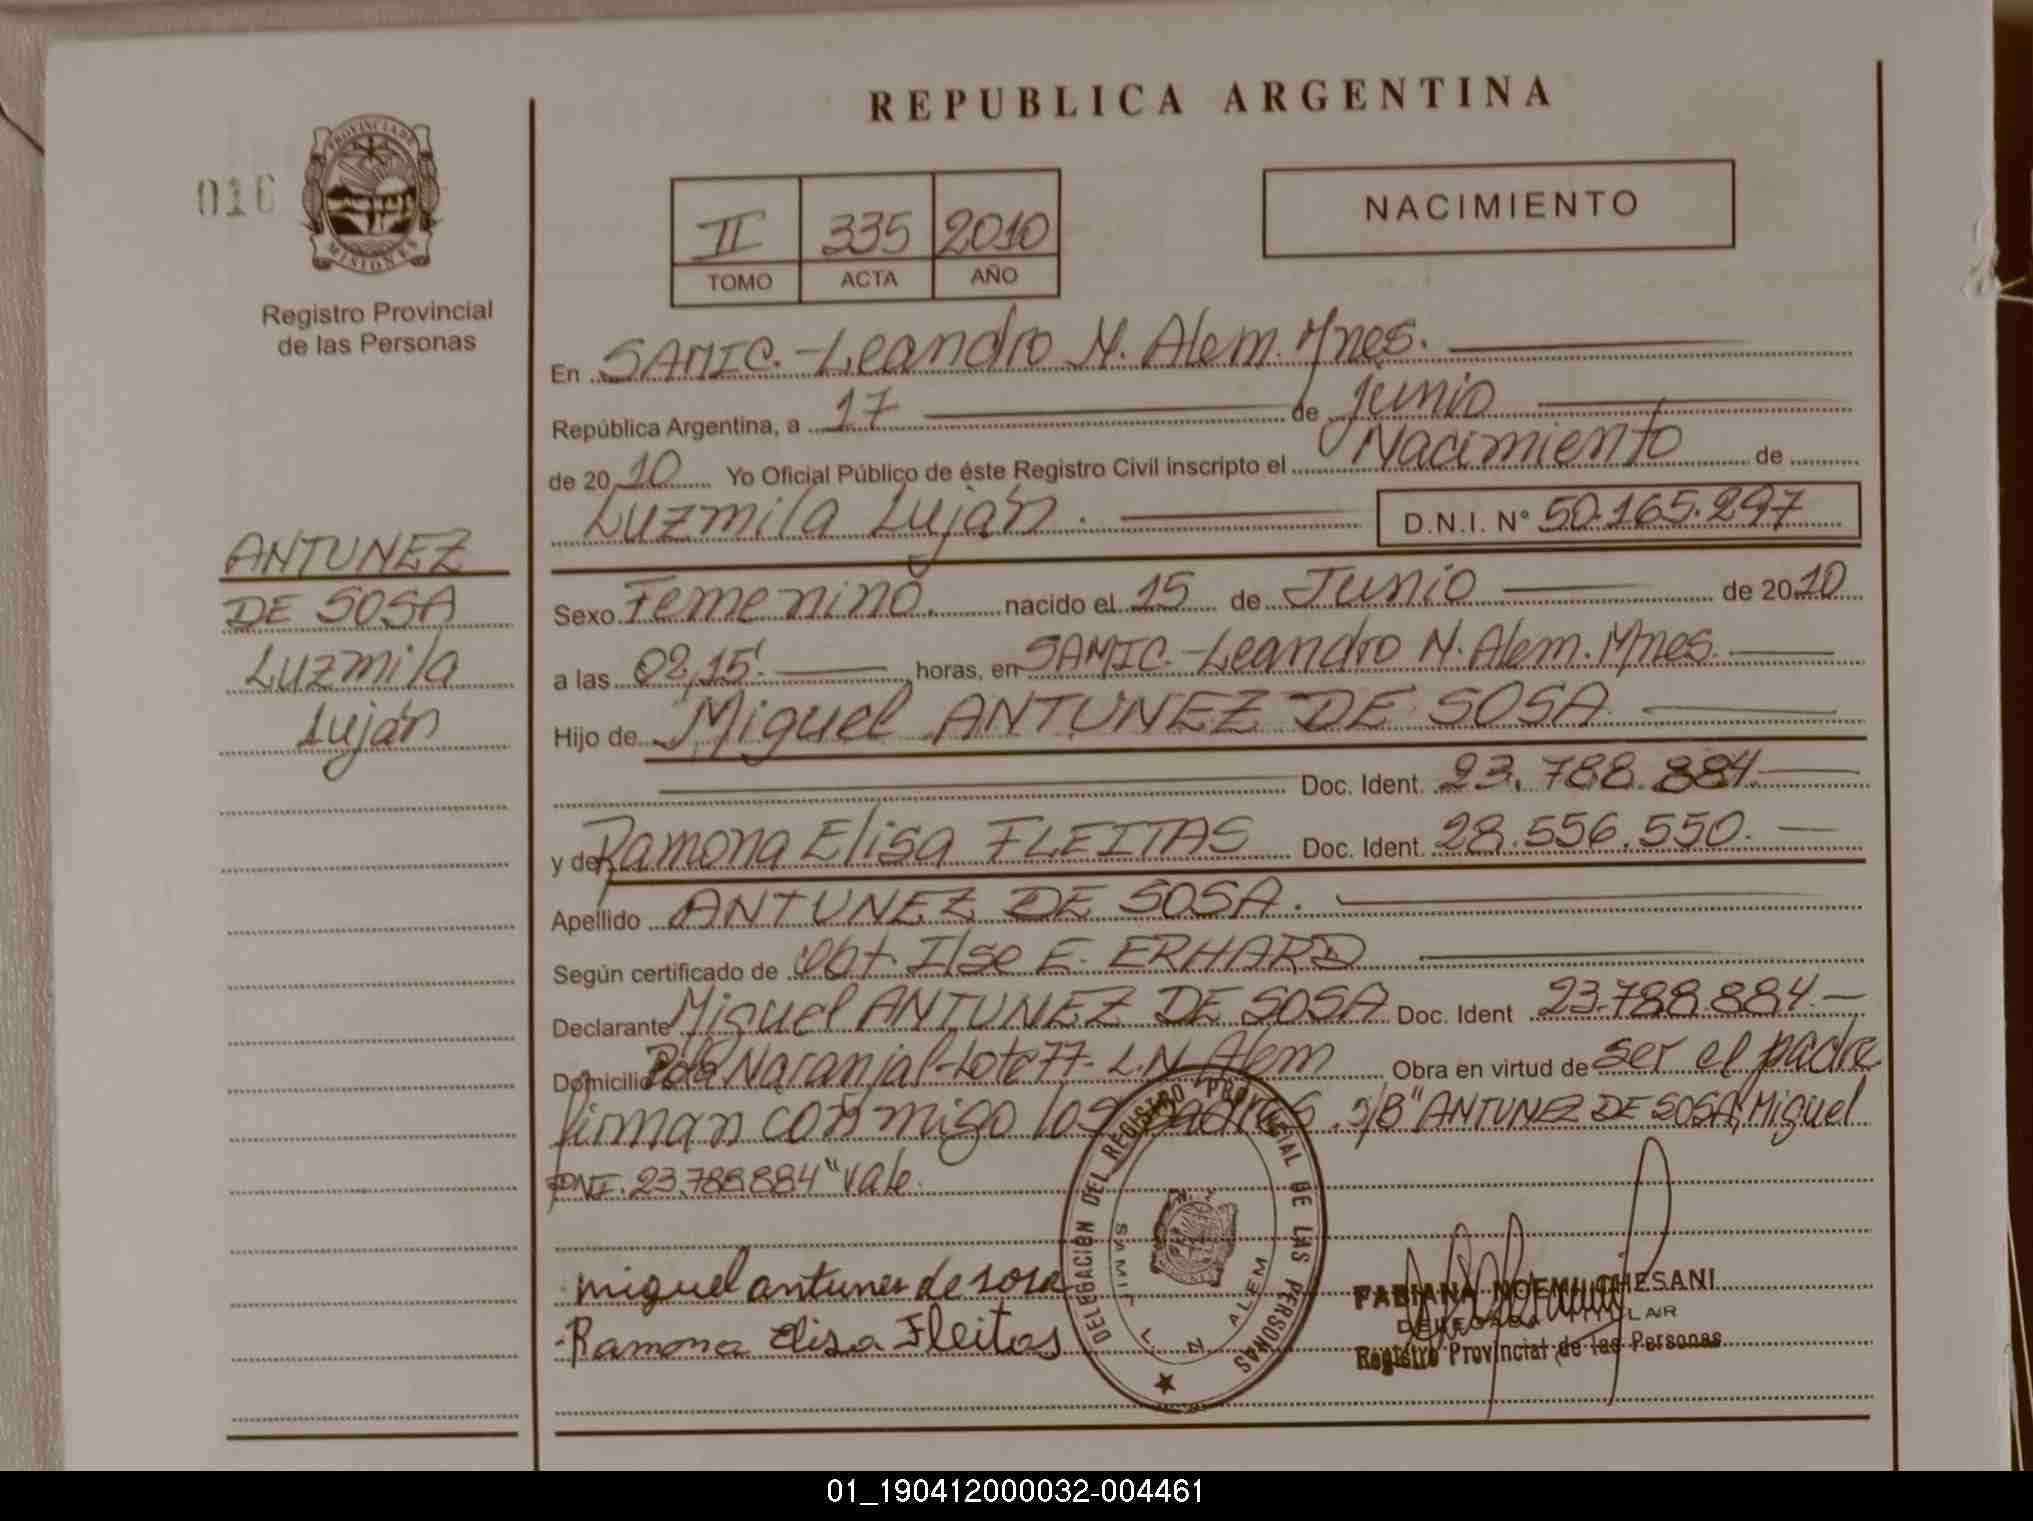 REPUBLICA ARGENTINA
PROVINCIA DE
MISIONES
Registro Provincial
de las Personas
II 335 2010
TOMO ACTA AÑO
NACIMIENTO
En SAMIC.-Leandro N. Alem. Mnes.
República Argentina, a 17 de junio
de 2010 Yo Oficial Público de éste Registro Civil inscripto el Nacimiento de
Luzmila Luján. D.N.I. N° 50.165.297
ANTUNEZ
DE SOSA
Luzmila
Luján
Sexo Femenino. nacido el 15 de Junio de 2010
a las 02,15'. horas, en SAMIC.-Leandro N. Alem. Mnes.
Hijo de Miguel ANTUNEZ DE SOSA
Doc. Ident. 23.788.884.
y de Ramona Elisa FLEITAS Doc. Ident. 28.556.550.
Apellido ANTUNEZ DE SOSA.
Según certificado de Obt. Ilse E. ERHARD
Declarante Miguel ANTUNEZ DE SOSA Doc. Ident 23.788.884.
Domicilio Naranjal-Lote 77- L.N. Alem Obra en virtud de ser el padre
firman conmigo los padres. S/B "ANTUNEZ DE SOSA, Miguel
DNI. 23.788.884" Vale.
miguel antunes de sosa
Ramona Elisa Fleitas
DELEGACION DEL REGISTRO PROVINCIAL DE LAS PERSONAS
SAMIC L N ALEM
FABIANA NOEMI GHESANI
DELEGADA TITULAR
Registro Provincial de las Personas
01_190412000032-004461